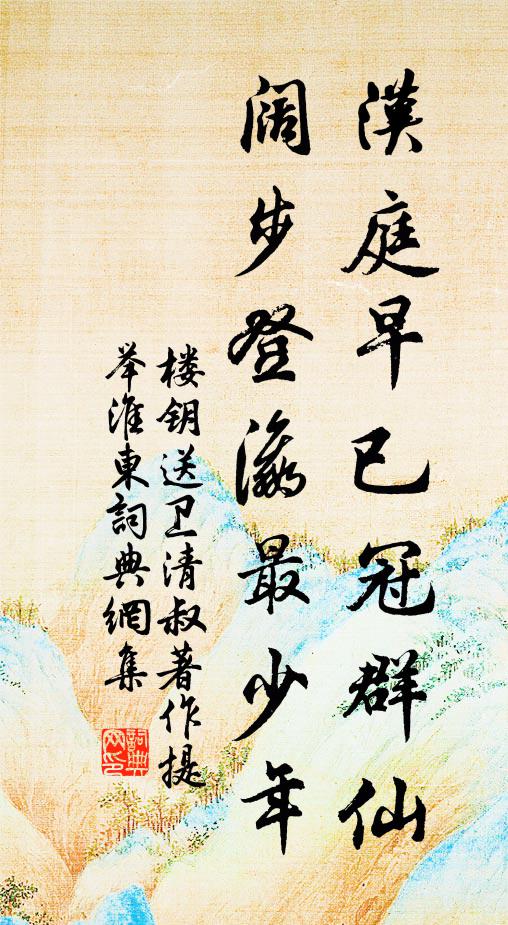 漢庭早已冠群仙
阔步登瀛最少年
楼钥送卫清叔著作提
举淮東詞典網集
詞典網印